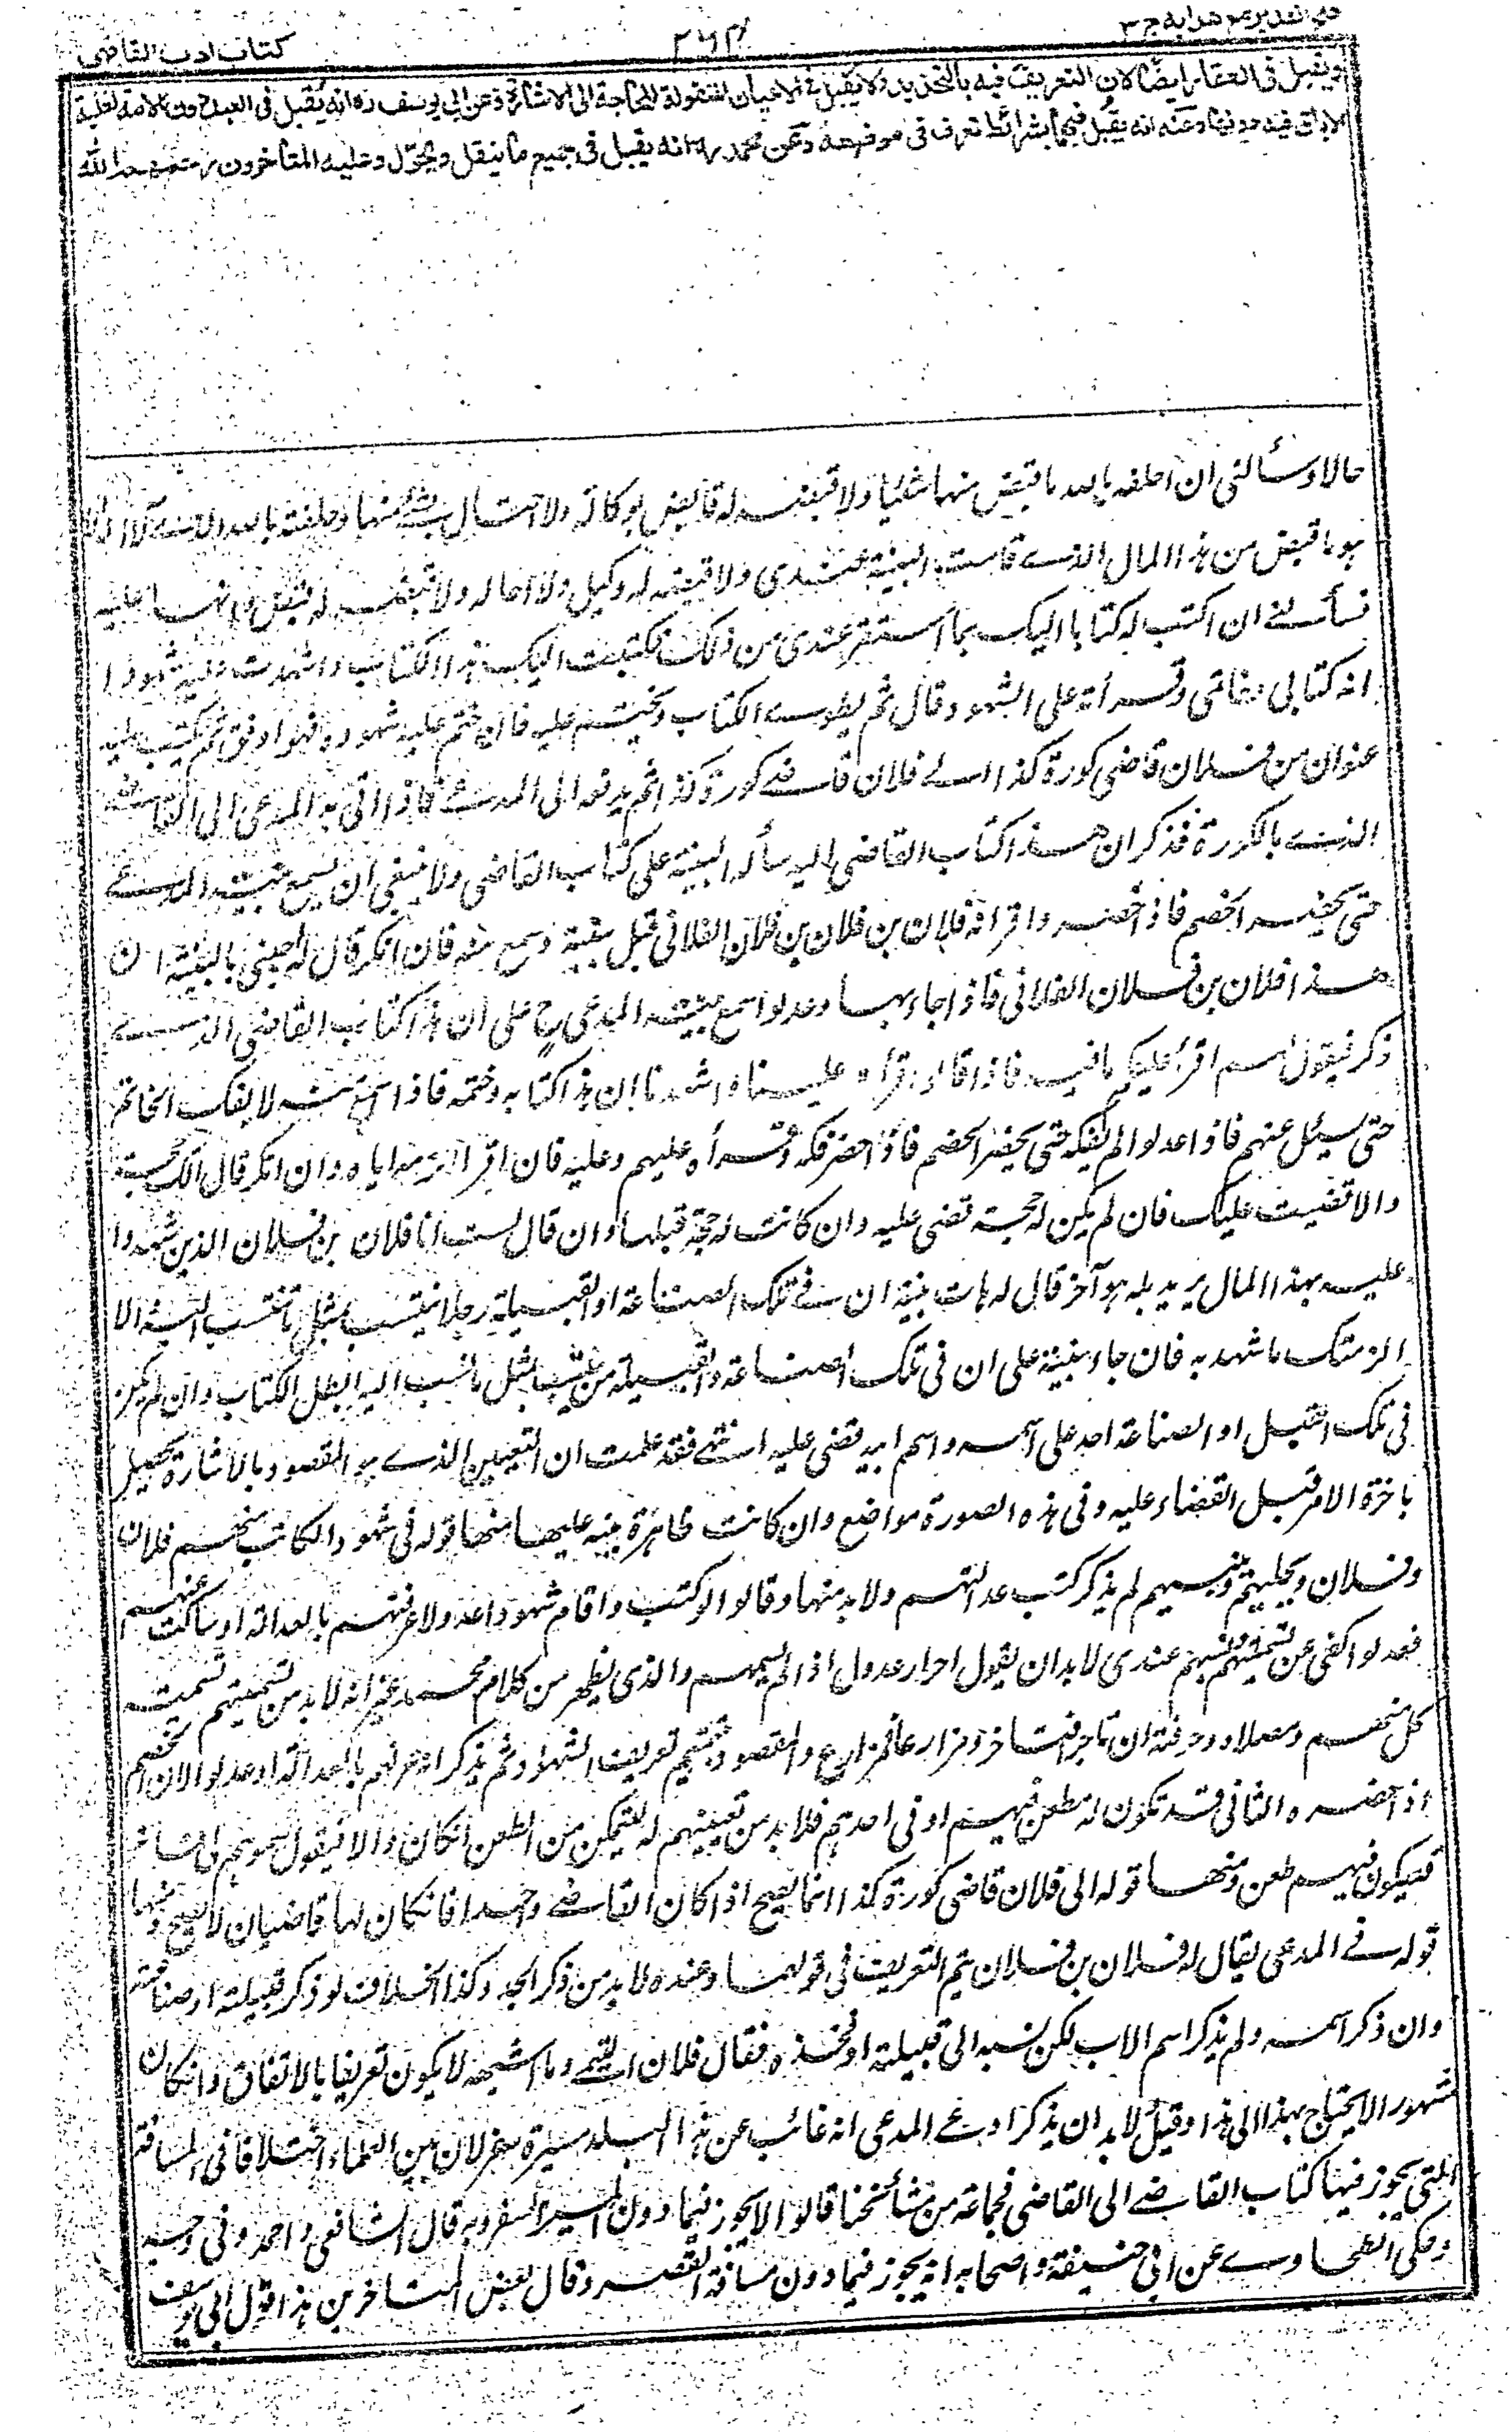 فتح القدير مع هدايه ج ٣
كتاب ادب القاضى
ويقبل فى العقار ايضًا لان التعريف فيه بالتحديد ولا يقبل فى الاعيان المنقولة للحاجة الى الاشارة وعن ابى يوسف رہ انه يقبل فى العبد دون الامة لغلبة
الاباق فيه دونها وعنه انه يقبل فيهما بشرائط تعرف فى موضعه وعن محمد رہ انه يقبل فى جميع ما ينقل ويحوّل وعليه المتاخرون رحمهم الله
حالا وسألنى ان احلفه بالله ما قبض منها شيئا ولا قبضه له قابض بوكالة ولا احتال بشئ منها وحلفته بالله الذى لا اله الا
هو ما قبض من هذا المال الذى قامت به البينة عندى ولا قبضه له وكيل ولا احاله ولا قبض له
فسألنى ان اكتب له كتابا اليك بما استقر عندى من ذلك فكتبت اليك هذا الكتاب واشهدت عليه شهودا
انه كتابى وخاتمى وقرأته على الشهود وقال ثم يطوى الكتاب ويختم عليه فان ختم عليه شهوده فهو اوفق ثم يكتب عليه
عنوان من فلان قاضى كورة كذا الى فلان قاضى كورة كذا ثم يدفعه الى المدعى فاذا اتى به المدعى الى القاضى
الذى بالكورة فذكر ان هذا كتاب القاضى اليه سأله البينة على كتاب القاضى ولا ينبغى ان يسمع بينة المدعى
حتى يحضر الخصم فاذا حضر واقر انه فلان بن فلان بن فلان الفلانى قبل بينته وسمع منه فان انكر قال له جئنى بالبينة ان
هذا فلان بن فلان الفلانى فاذا جاء بها وعدلوا سمع بينة المدعى ح على ان هذا كتاب القاضى الذى
ذكر فيقول لهم اقرأ عليكم ما فيه فاذا قالوا قرأه علينا واشهدنا ان هذا كتابه وختمه فاذا سمع منه لا يفك الخاتم
حتى يسئل عنهم فاذا عدلوا لم يفكه حتى يحضر الخصم فاذا حضر فكه وقرأه عليهم وعليه فان اقر الزمه اياه وان انكر قال الك حجة
والا قضيت عليك فان لم يكن له حجة قضى عليه وان كانت له حجة قبلها وان قال لست انا فلان بن فلان الذى شهدوا
عليه بهذا المال يريد بل هو آخر قال له هات بينة ان فى تلك الصناعة او القبيلة رجلا ينتسب بمثل ما تنتسب اليه والا
الزمتك ما شهد به فان جاء ببينة على ان فى تلك الصناعة والقبيلة من ينتسب بمثل ما نسب اليه ابطل الكتاب وان لم يكن
فى تلك القبيلة او الصناعة احد على اسمه واسم ابيه قضى عليه انتهى فقد علمت ان التعيين الذى هو المقصود بالاشارة يحصل
باخرة الامر قبل القضاء عليه وفى هذه الصورة مواضع وان كانت ظاهرة ينبه عليها منها قوله فى شهود الكاتب منهم فلان
وفلان ويحليهم وينسبهم لم يذكر كتب عدالتهم ولا بد منها وقالوا لو كتب واقام شهودا عدولا عرفتهم بالعدالة او سألت عنهم
فعدلوا كفى عن تسميتهم ونسبهم عندى لا بد ان يقول احرار عدول اذا لم يسمهم والذى يظهر من كلام محمد وغيره انه لا بد من تسميتهم تسمية
كل منهم ومصلاه وحرفته ان تاجرا فتاجر ومزارعا فمزارع والمقصود تتميم تعريف الشهود ثم يذكر انه عرفهم بالعدالة او عدلوا لان الخصم
اذا حضره الثانى قد تكون له مطعن فيهم او فى احدهم فلا بد من تعيينهم له ليتمكن من الطعن ان كان والا فيقول
فيكون فيهم طعن ومنها قوله الى فلان قاضى كورة كذا انما يصح اذا كان القاضى واحدا فان كان لها قاضيان لا يصح ومنها
قوله فى المدعى يقال له فلان بن فلان يتم التعريف فى قولهما وعنده لا بد من ذكر الجد وكذا الخلاف لو ذكر قبيلته او صناعته
وان ذكر اسمه ولم يذكر اسم الاب لكن نسبه الى قبيلته او فخذه فقال فلان التميمى وما اشبهه لا يكون تعريفا بالاتفاق وان كان
مشهورا لا يحتاج بهذا الى هذا وقيل لا بد ان يذكر ادعى المدعى انه غائب عن هذا البلد مسيرة سفر لان بين العلماء اختلافا فى المسافة
التى يجوز فيها كتاب القاضى الى القاضى فجماعة من مشائخنا قالوا لا يجوز فيما دون المسير السفر وبه قال الشافعى واحمد وفى وجه
وحكى الطحاوى عن ابى حنيفة واصحابه انه يجوز فيما دون مسافة القصر وقال بعض المتاخرين هذا قول ابى يوسف